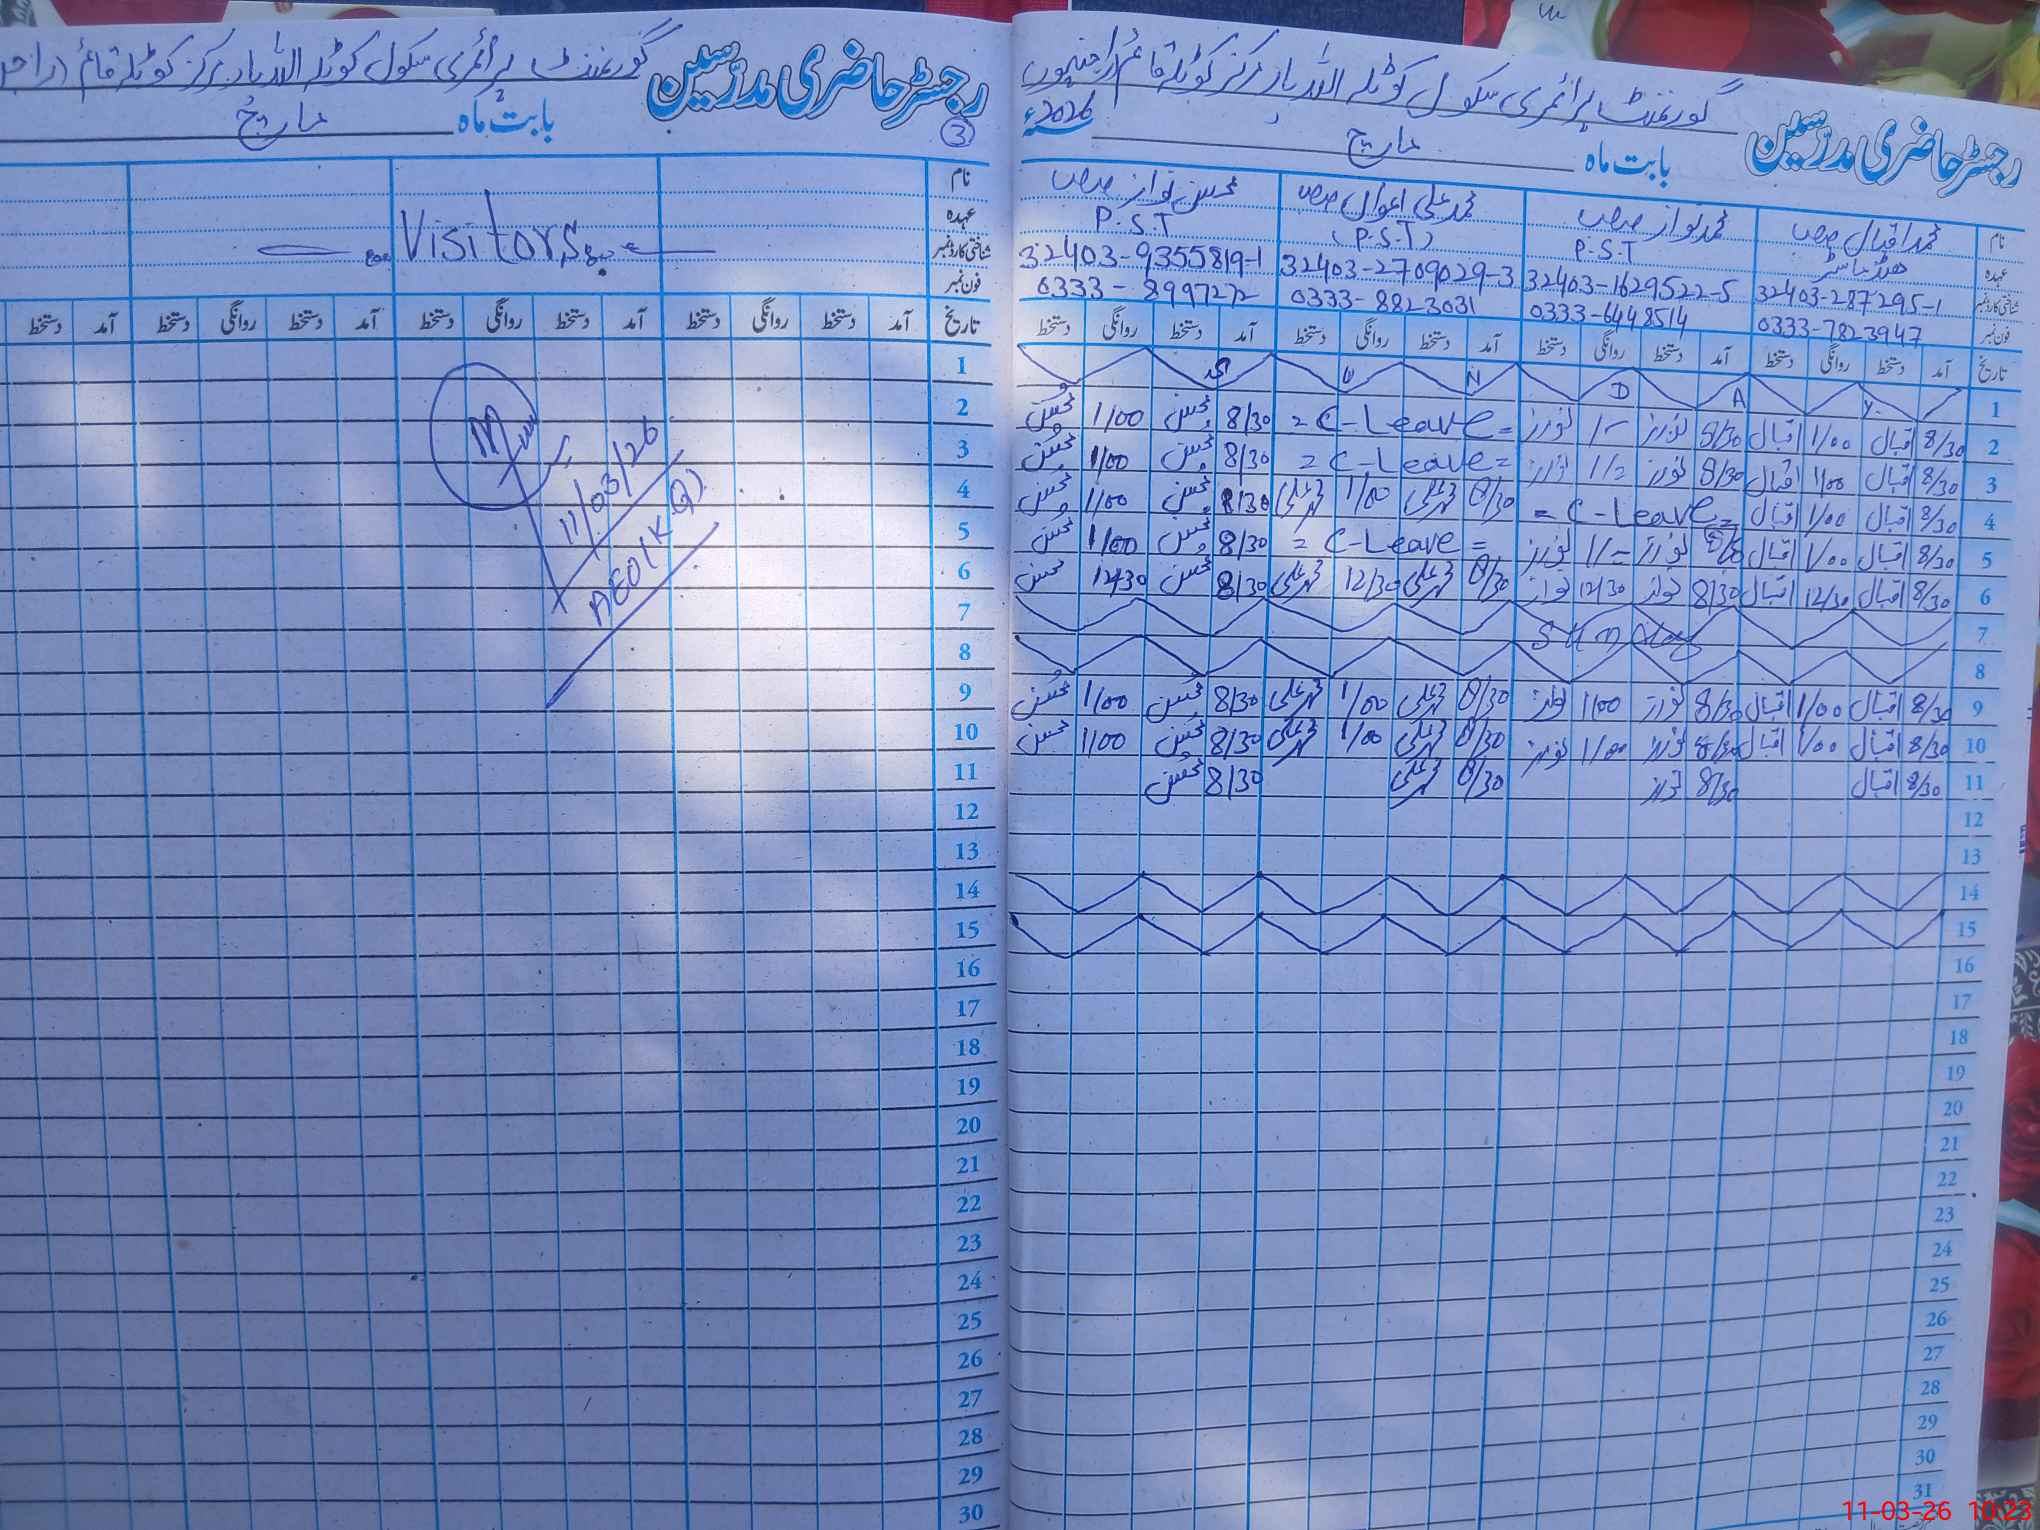 رجسٹر حاضری مدرسین گورنمنٹ پرائمری سکول کوٹلہ اللہ یار مرکز کوٹلہ قائم (راجن
3
بابت ماہ مارچ
نام
عہدہ
شناختی کارڈ نمبر
فون نمبر
Visitors
تاریخ آمد دستخط روانگی دستخط آمد دستخط روانگی دستخط آمد دستخط روانگی دستخط آمد دستخط
1
2
3
4
5
6
7
8
9
10
11
12
13
14
15
16
17
18
19
20
21
22
23
24
25
26
27
28
29
30
11/03/26
AEO (K.Q)
رجسٹر حاضری مدرسین گورنمنٹ پرائمری سکول کوٹلہ اللہ یار مرکز کوٹلہ قائم
بابت ماہ مارچ 2026ء
نام محمد اقبال صاحب محمد نواز صاحب محمد علی اعوان صاحب محسن نواز صاحب
عہدہ ھیڈ ماسٹر P.S.T (P.S.T) P.S.T
شناختی کارڈ نمبر 32403-287295-1 32403-1629522-5 32403-2709029-3 32403-9355819-1
فون نمبر 0333-7823947 0333-6448514 0333-8823031 0333-8997272
تاریخ آمد دستخط روانگی دستخط آمد دستخط روانگی دستخط آمد دستخط روانگی دستخط آمد دستخط روانگی دستخط
1 S U N D A Y
2 8/30 اقبال 1/00 اقبال 8/30 نواز 1/- نواز = C-Leave = 8/30 محسن 1/00 محسن
3 8/30 اقبال 1/00 اقبال 8/30 نواز 1/= نواز = C-Leave = 8/30 محسن 1/00 محسن
4 8/30 اقبال 1/00 اقبال = C-Leave = 8/30 محمد علی 1/00 محمد علی 8/30 محسن 1/00 محسن
5 8/30 اقبال 1/00 اقبال 8/30 نواز 1/= نواز = C-Leave = 8/30 محسن 1/00 محسن
6 8/30 اقبال 12/30 اقبال 8/30 نواز 12/30 نواز 8/30 محمد علی 12/30 محمد علی 8/30 محسن 12/30 محسن
7 Sunday
8
9 8/30 اقبال 1/00 اقبال 8/30 نواز 1/00 نواز 8/30 محمد علی 1/00 محمد علی 8/30 محسن 1/00 محسن
10 8/30 اقبال 1/00 اقبال 8/30 نواز 1/00 نواز 8/30 محمد علی 1/00 محمد علی 8/30 محسن 1/00 محسن
11 8/30 اقبال 8/30 نواز 8/30 محمد علی 8/30 محسن
12
13
14
15
16
17
18
19
20
21
22
23
24
25
26
27
28
29
30
31
11-03-26 10:23